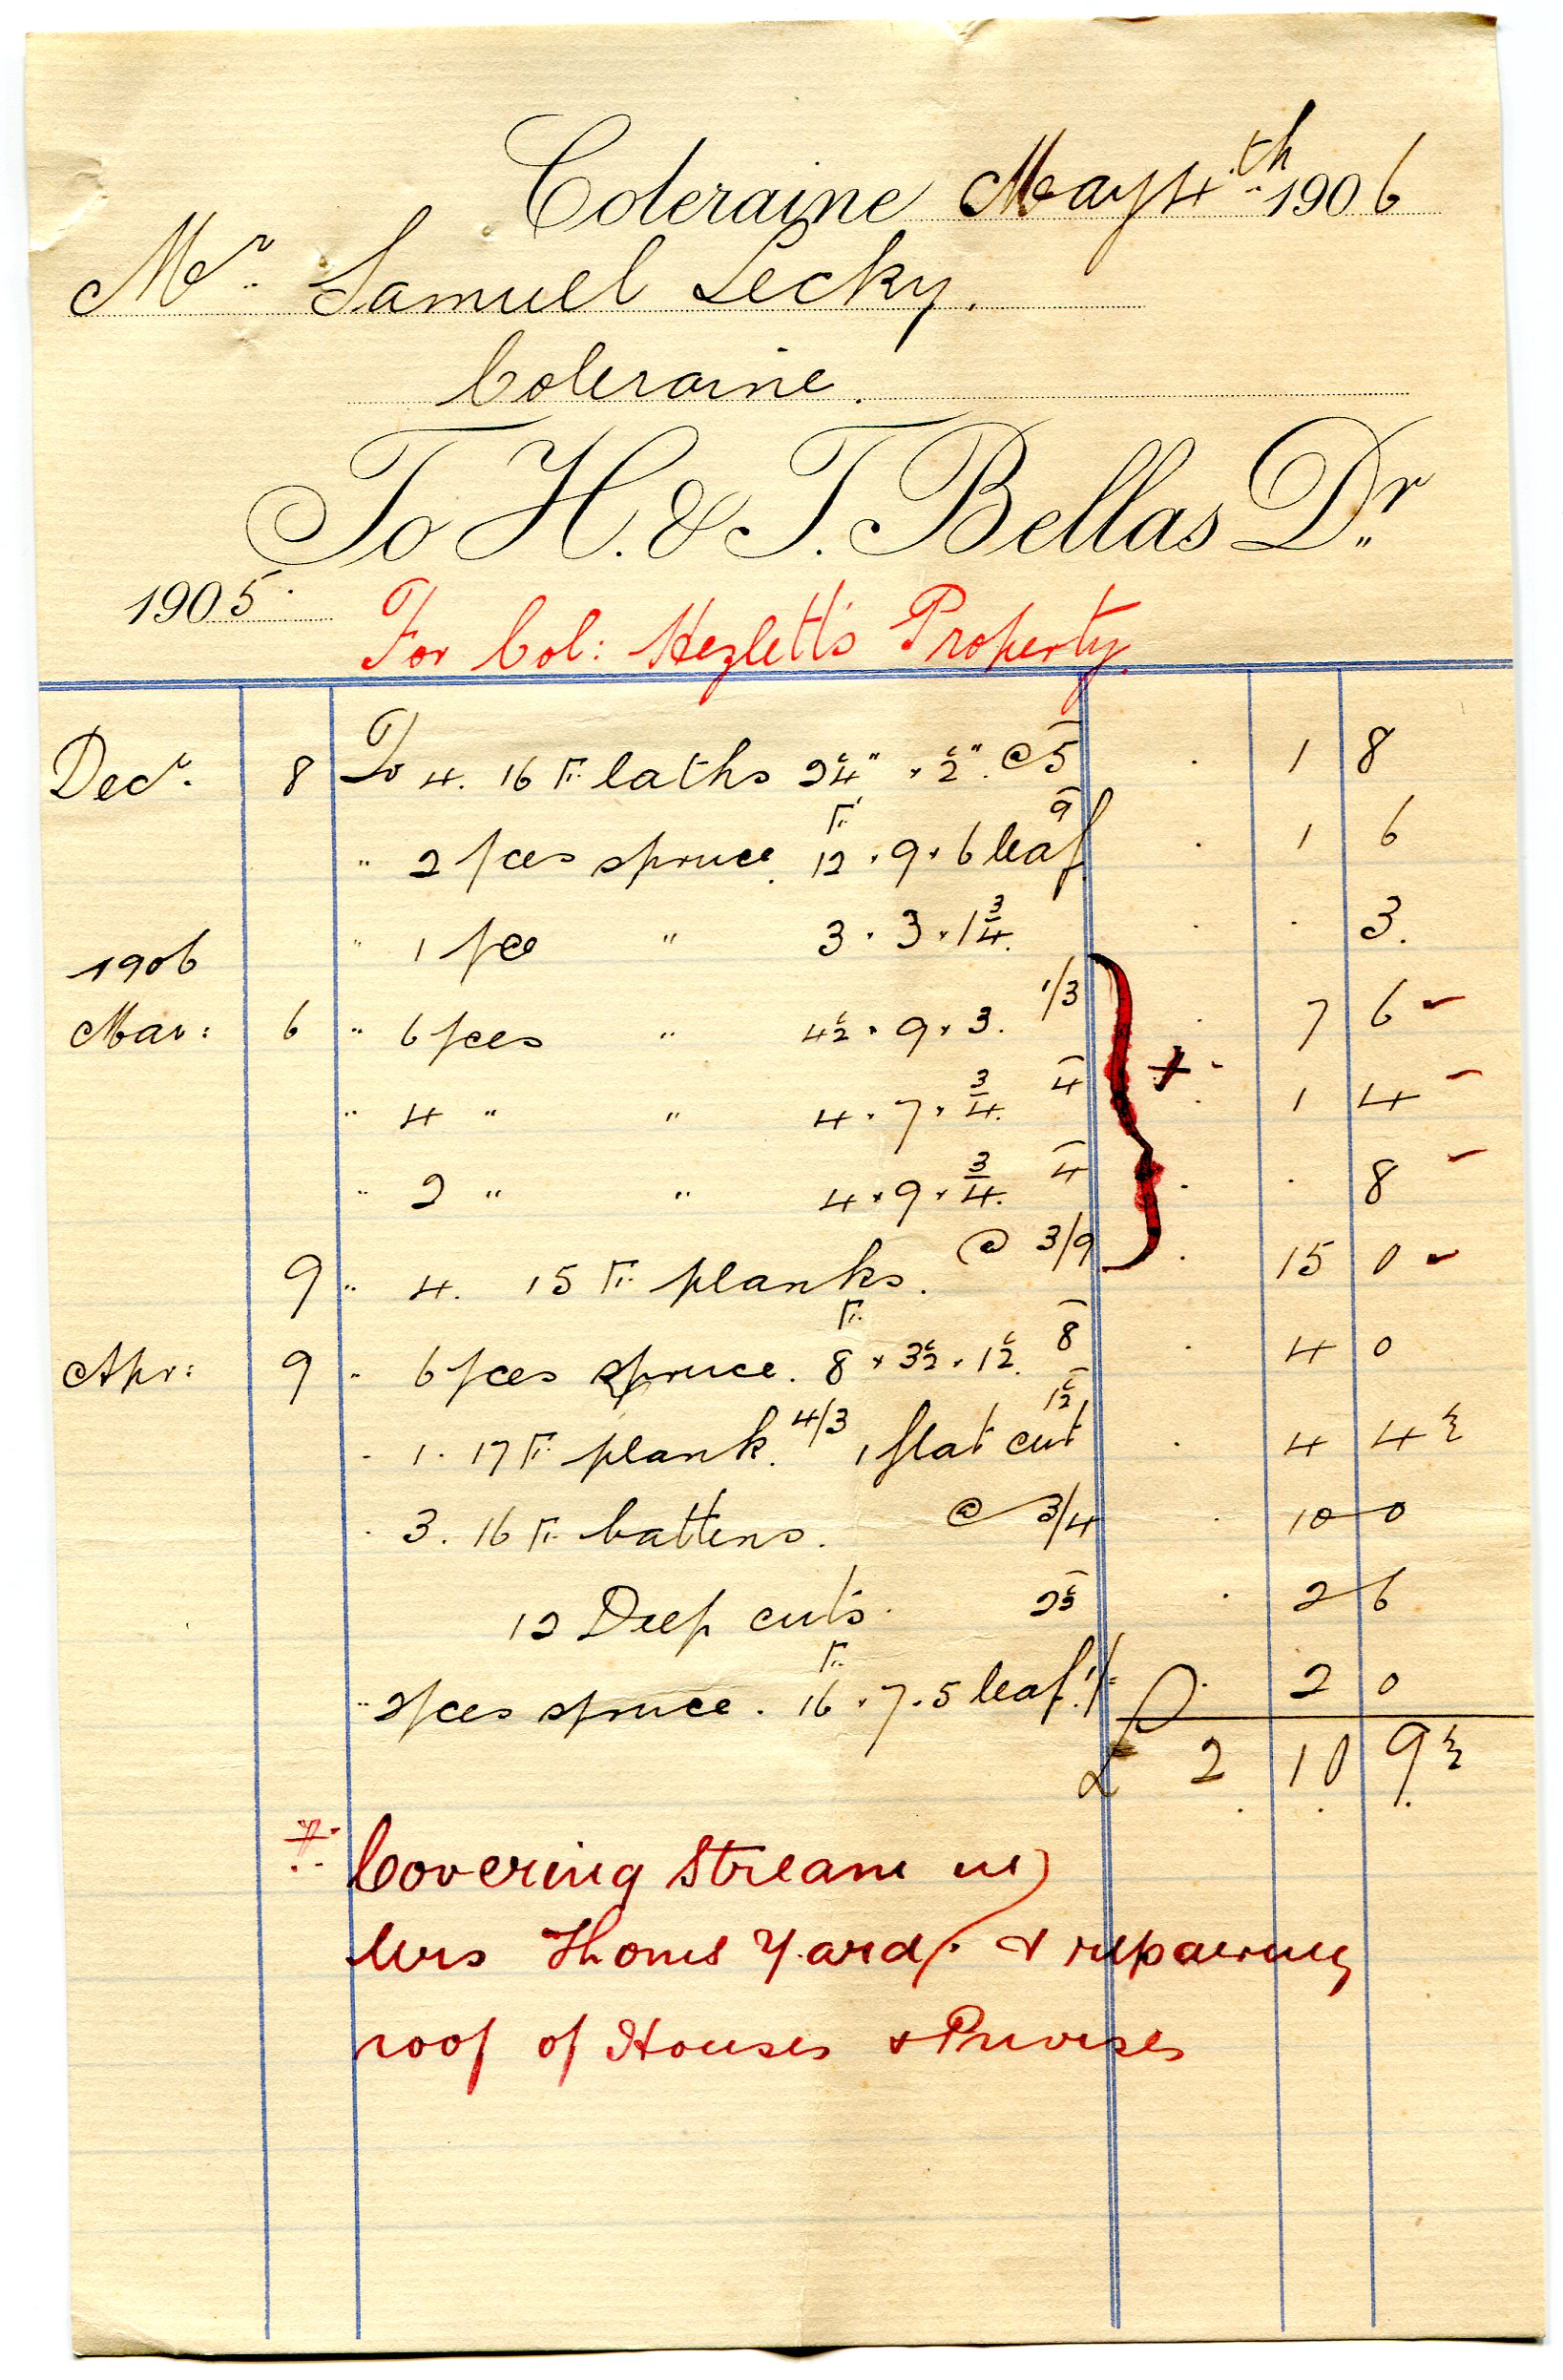 Coleraine May 4th 1906
Mr. Samuel Lecky.
Coleraine.
To H. & T. Bellas Dr.
1905. For Col: Hezlett's Property.
Decr. 8 To 4. 16 Ft. laths 2¼" × ½". @ 5 . 1 8
" 2 pces spruce. 12 Ft. × 9 × 6 leaf 9 . 1 6
" 1 pce " 3 × 3 × 1¾. . . 3.
1906
Mar: 6 " 6 pces " 4½ × 9 × 3. 1/3 . 7 6
" 4 " " 4 × 7 × ¾. 4 . 1 4
" 2 " " 4 × 9 × ¾. 4 . . 8
9 " 4. 15 Ft. planks. @ 3/9 . 15 0
Apr: 9 " 6 pces spruce. 8 Ft. × 3½ × 1½. 8 . 4 0
" 1. 17 Ft. plank. 4/3, 1 flat cut 1½ . 4 4½
" 3. 16 Ft. battens. @ 3/4 . 10 0
12 Deep cuts. 2½ . 2 6
" 2 pces spruce. 16 Ft. × 7 × 5 leaf. 1/- . 2 0
£ 2 10 9½
Covering Stream in
Mrs Thoms Yard. & repairing
roof of Houses & Privises